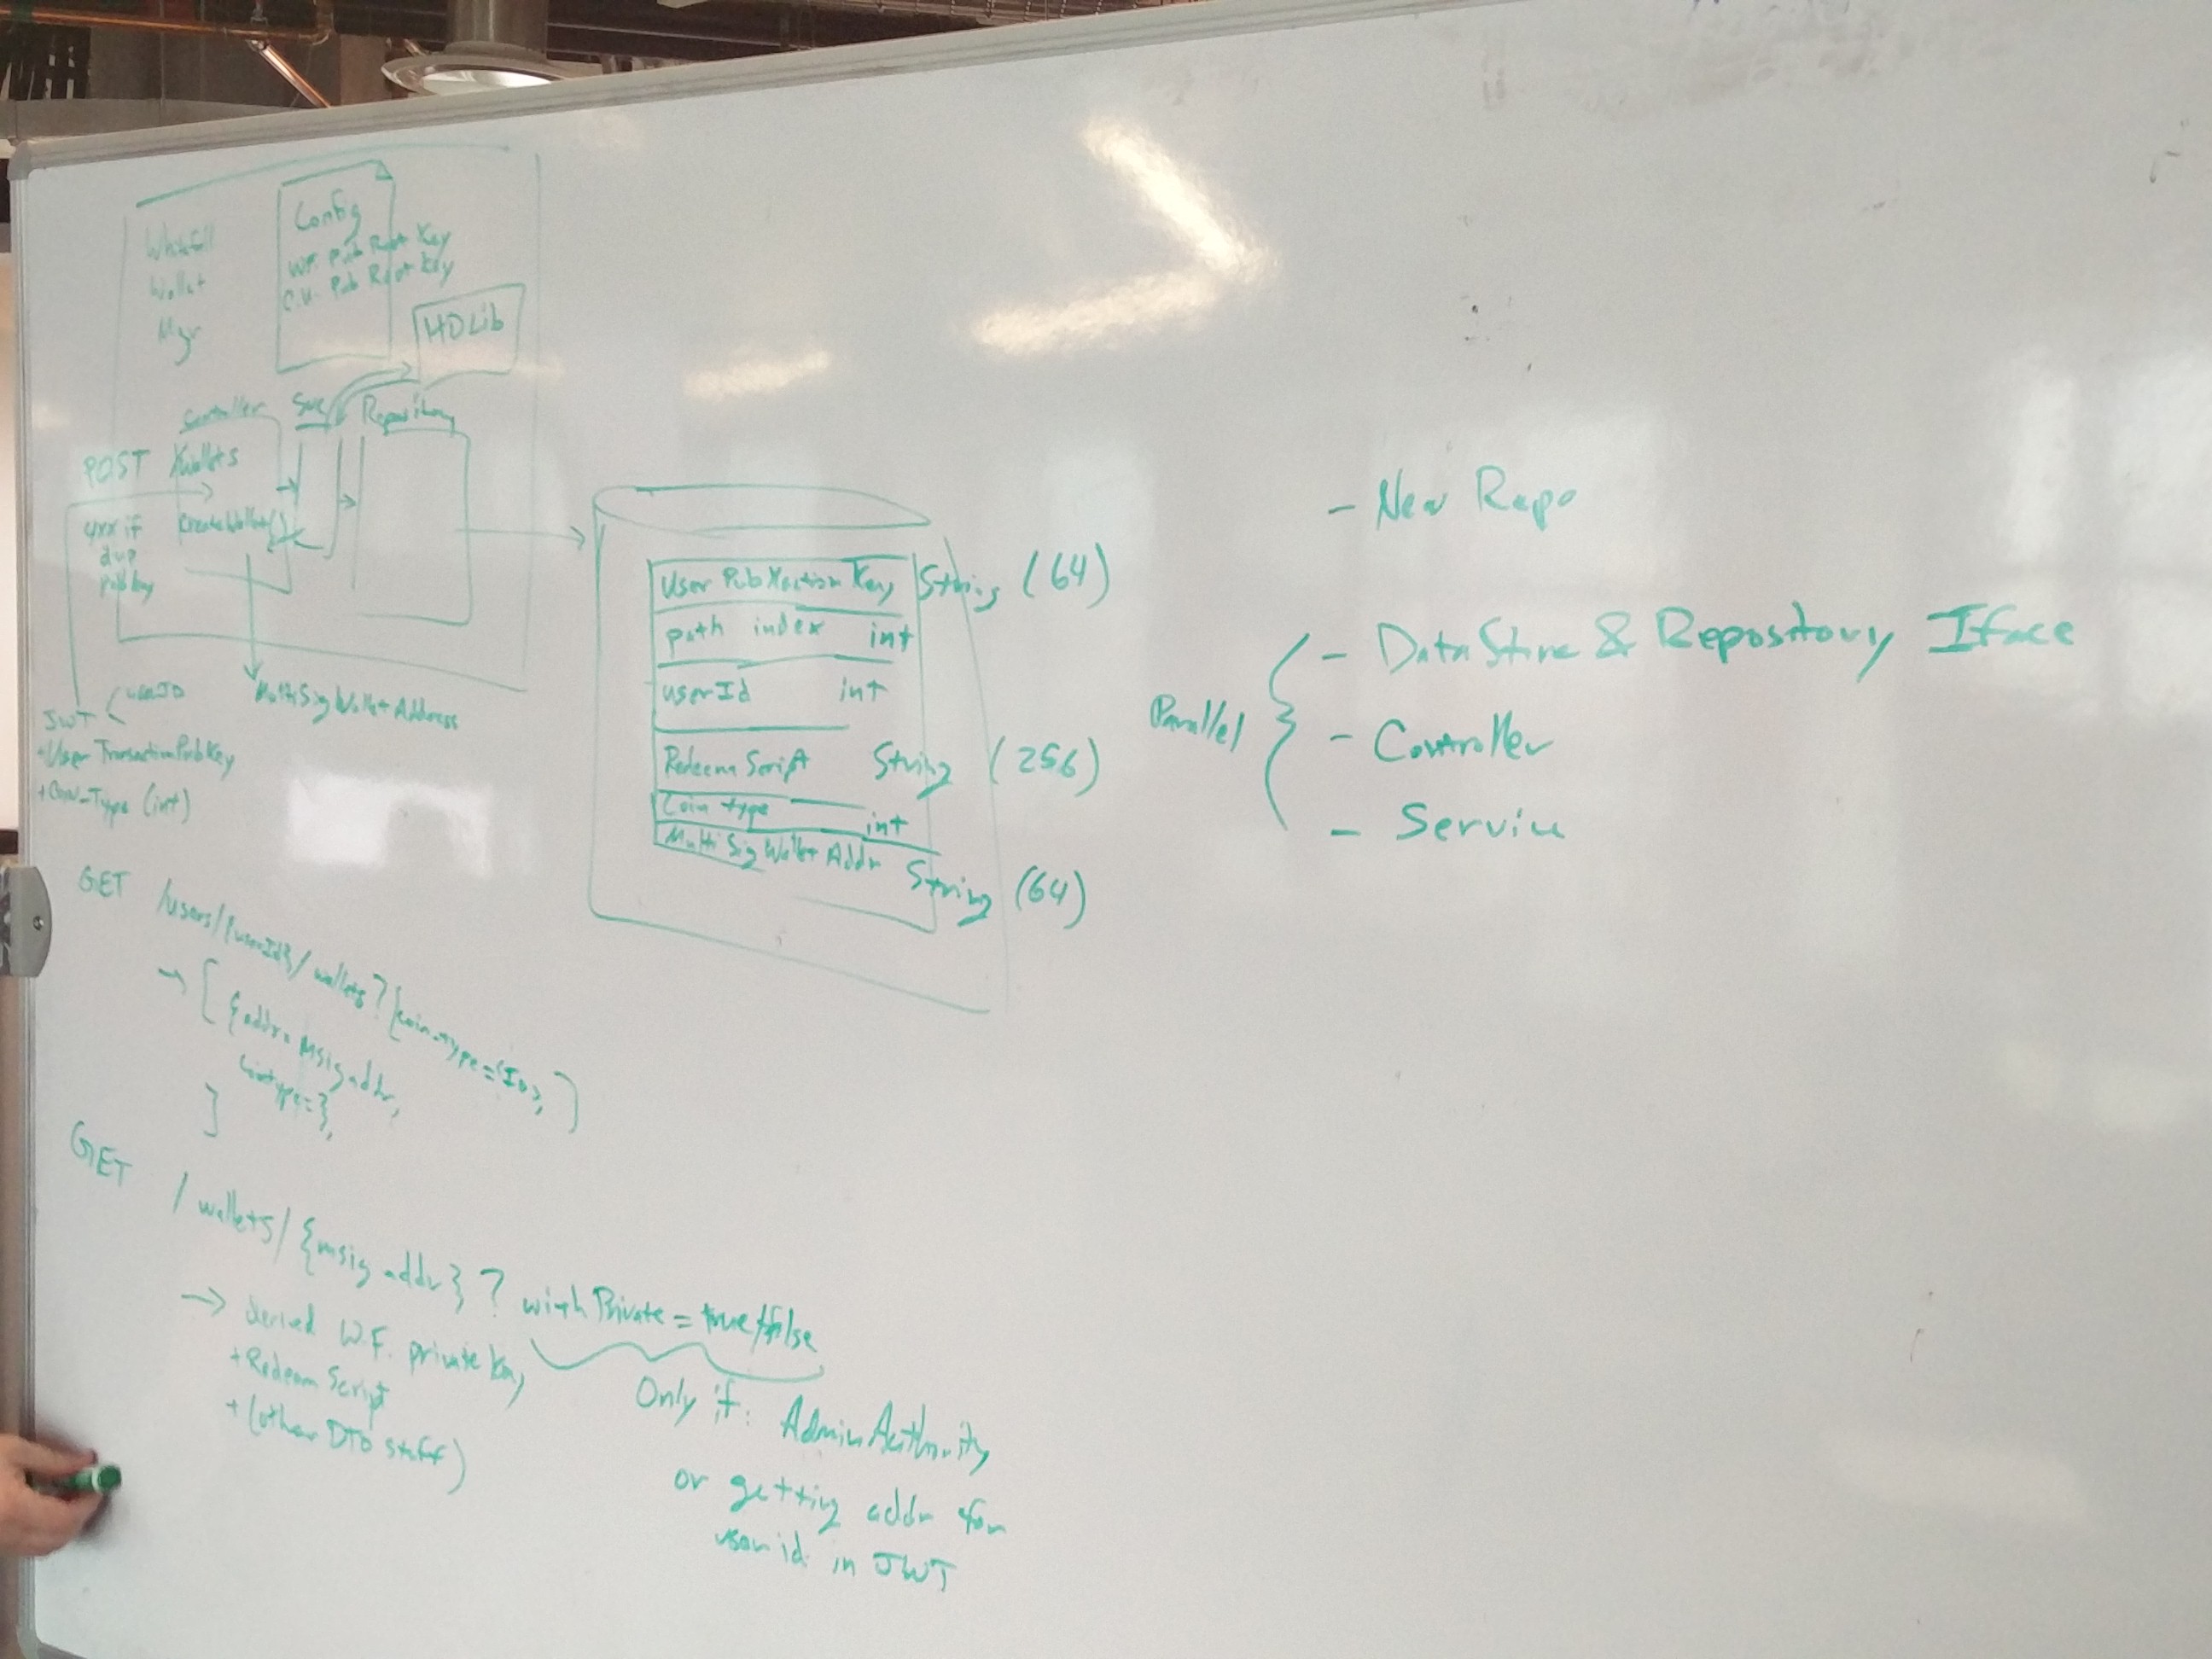 Wallet
Mgr
Config
W.F. Pub Root Key
C.U. Pub Root Key
HD Lib
Controller
Svc
Repository
POST /wallets
4xx if
dup
pubkey
createWallet()
MultiSigWallet Address
JWT
userID
+User TransactionPubKey
+Coin_Type (int)
User Pub Xaction Key String (64)
path index int
userId int
Redeem Script String (256)
Coin type int
Multi Sig Wallet Addr String (64)
- New Repo
Parallel
- Data Store & Repository Iface
- Controller
- Service
GET /users/{userId}/wallets?[coin_type=
→ [
{addr= msig addr,
cointype=},
]
GET /wallets/{msig addr}? withPrivate = true/false
→ derived W.F. private key
+Redeem Script
+(other DTO stuff)
Only if: AdminAuthority
or getting addr for
user id in JWT